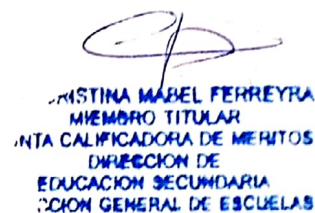 RISTINA MABEL FERREYRA
MIEMBRO TITULAR
NTA CALIFICADORA DE MERITOS
DIRECCION DE
EDUCACION SECUNDARIA
CCION GENERAL DE ESCUELAS